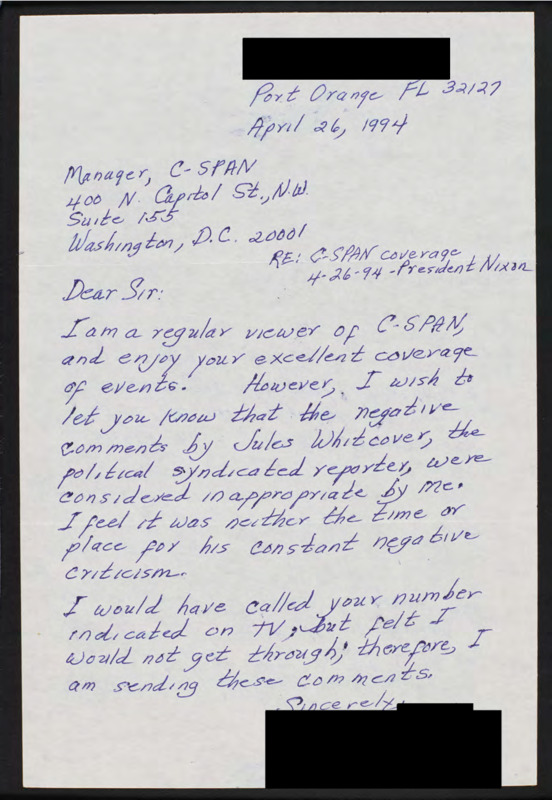 Port Orange FL 32127
April 26, 1994
Manager, C-SPAN
400 N. Capitol St., N.W.
Suite 155
Washington, D.C. 20001
RE: C-SPAN coverage
4-26-94 - President Nixon
Dear Sir:
I am a regular viewer of C-SPAN,
and enjoy your excellent coverage
of events. However, I wish to
let you know that the negative
comments by Jules Whitcover, the
political syndicated reporter, were
considered inappropriate by me.
I feel it was neither the time or
place for his constant negative
criticism.
I would have called your number
indicated on TV; but felt I
would not get through; therefore, I
am sending these comments.
Sincerely,